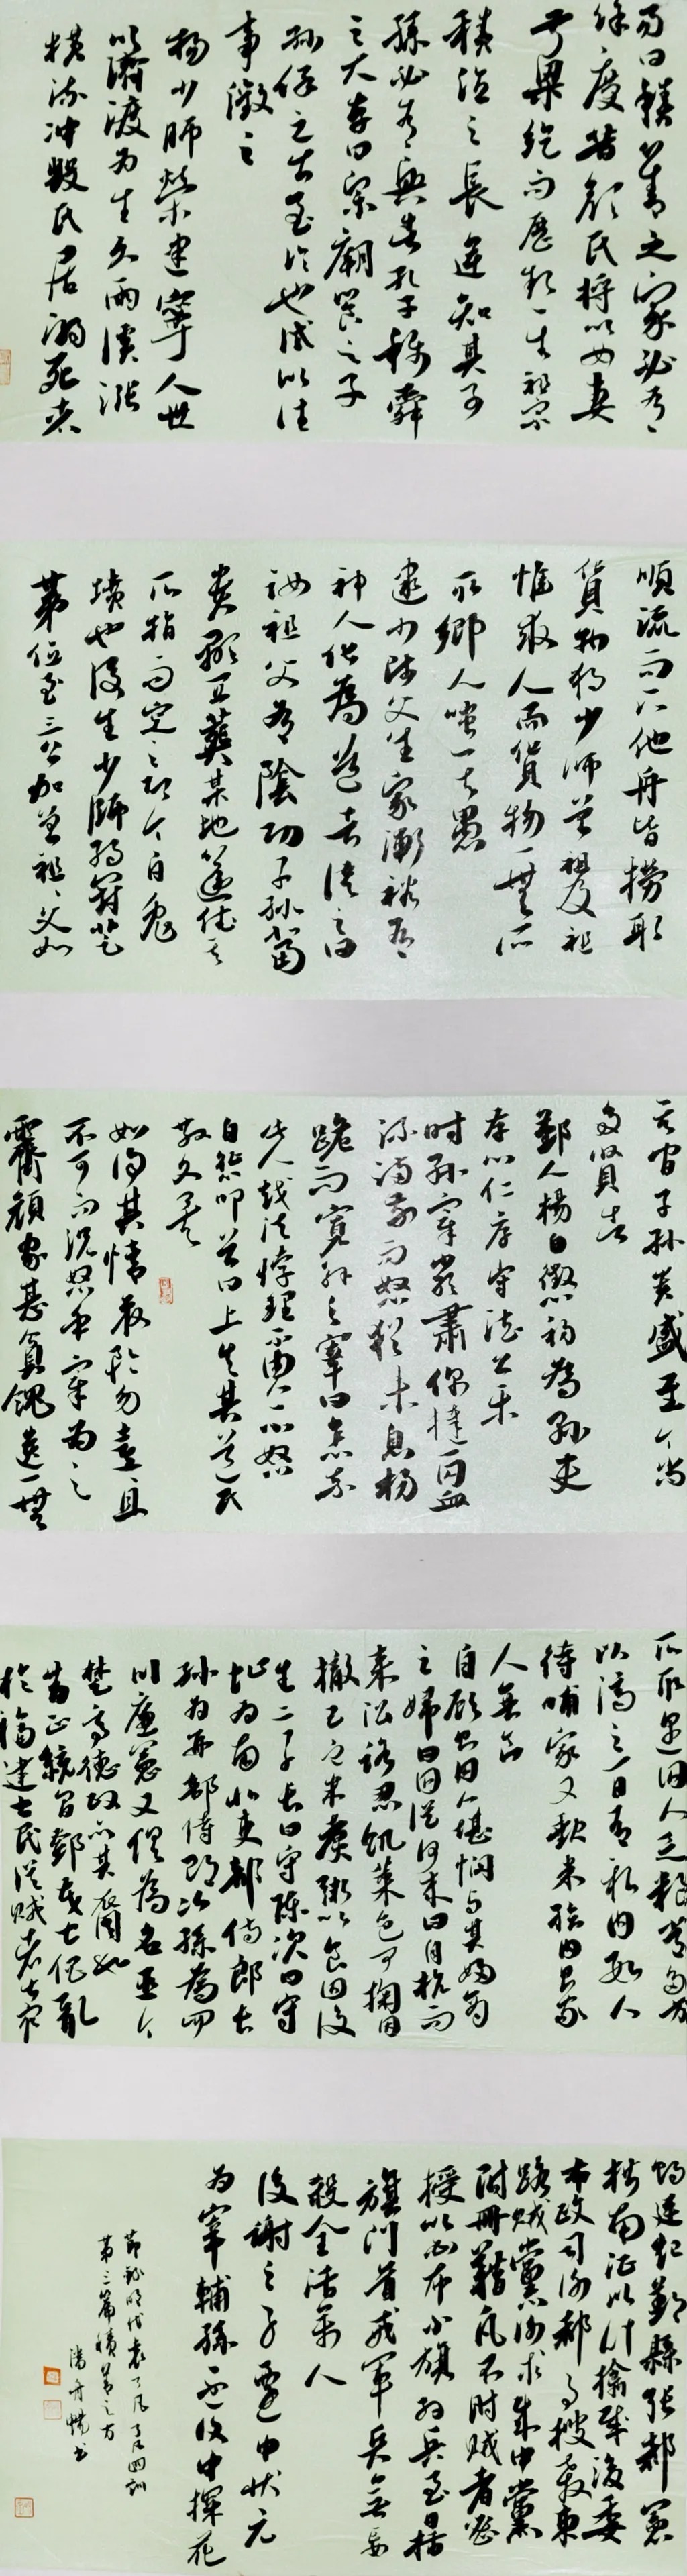 易曰积善之家必有
馀庆昔颜氏将以女妻
叔梁纥而历叙其祖宗
积德之長逆知其子
孫必有興者孔子稱舜
之大孝曰宗廟饗之子
孙保之皆至论也试以往
事徵之
杨少師榮建寧人世
以濟渡为生久雨溪涨
横流冲毁民居溺死者
順流而下他舟皆撈取
貨物独少师曾祖及祖
惟救人而貨物一無所
取鄉人嗤其愚
逮少师父生家渐裕有
神人化為道者语之曰
汝祖父有陰功子孙當
贵顯宜葬某地遂依其
所指而窆之即今白兔
墳也後生少師弱冠登
第位至三公加曾祖祖父如
其官子孙贵盛至今尚
多賢者
鄞人楊自懲初為县吏
存心仁厚守法公平
时县宰嚴肅偶撻一囚血
流满前而怒猶未息杨
跪而寬解之宰曰怎奈
此人越法悖理不由人不怒
自懲叩首曰上失其道民
散久矣
如得其情哀矜勿喜喜且
不可而况怒乎宰为之
霽顔家甚貧餽遗一無
所取遇囚人乏粮常多方
以濟之一日有新囚数人
待哺家又缺米给囚则家
人無食
自顧则囚人堪悯与其婦商
之婦曰囚從何来曰自杭而
来沿路忍飢菜色可掬因
撤己之米煮粥以食囚後
生二子長曰守陈次曰守
址为南北吏部侍郎長
孙为刑部侍郎次孫為四
川廉憲又俱為名臣今
楚亭德政亦其裔也
昔正統间鄧茂七倡亂
於福建士民從賊者甚众
朝廷起鄞縣張都憲
楷南征以计擒贼後委
布政司谢都事搜殺東
路贼黨谢求贼中黨
附冊籍凡不附贼者密
授以白布小旗约兵至日插
旗门首戒軍兵無妄
殺全活萬人
後謝之子遷中状元
为宰輔孫丕復中探花
节录明代袁了凡了凡四训
第三篇積善之方